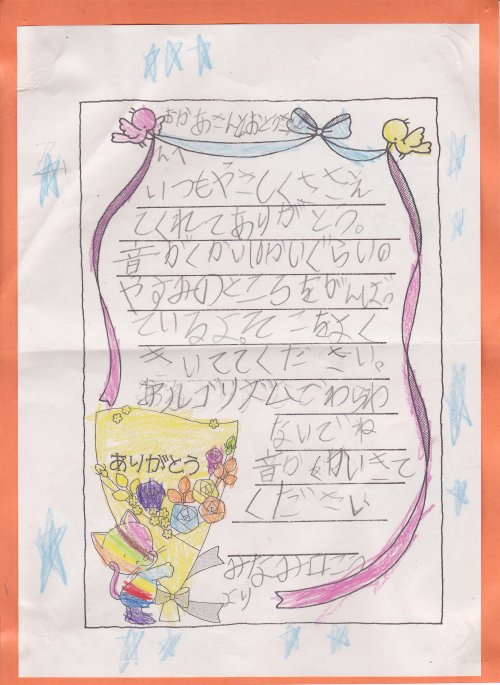 おかあさんとおとうさ
んへ
いつもやさしくささえ
てくれてありがとう。
音がくかい10かいぐらいの
やすみのところをがんばっ
ているよ。そこをよく
きいててください。
ゴリズムでわらわ
ないでね
音がくかいきて
ください
ありがとう
より